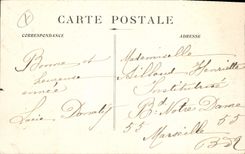 CARTE POSTALE
CORRESPONDANCE
ADRESSE
Bonne et
heureuse
année
Lucie Donaty
Mademoiselle
Aillaud Henriette
Institutrice
Bd Notre Dame
55 Marseille 55
B-R